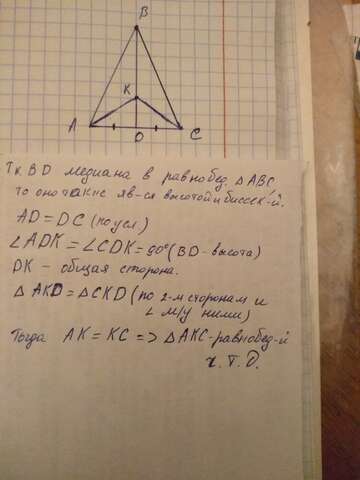 B
K
A
D
C
Т.к. BD медиана в равнобед. △ABC,
то она также яв-ся высотой и биссек-й.
AD = DC (по усл)
∠ADK = ∠CDK = 90° (BD - высота)
DK - общая сторона.
△ AKD = △CKD (по 2-м сторонам и
∠ м/у ними)
Тогда AK = KC => △AKC - равнобед-й
ч.т.д.